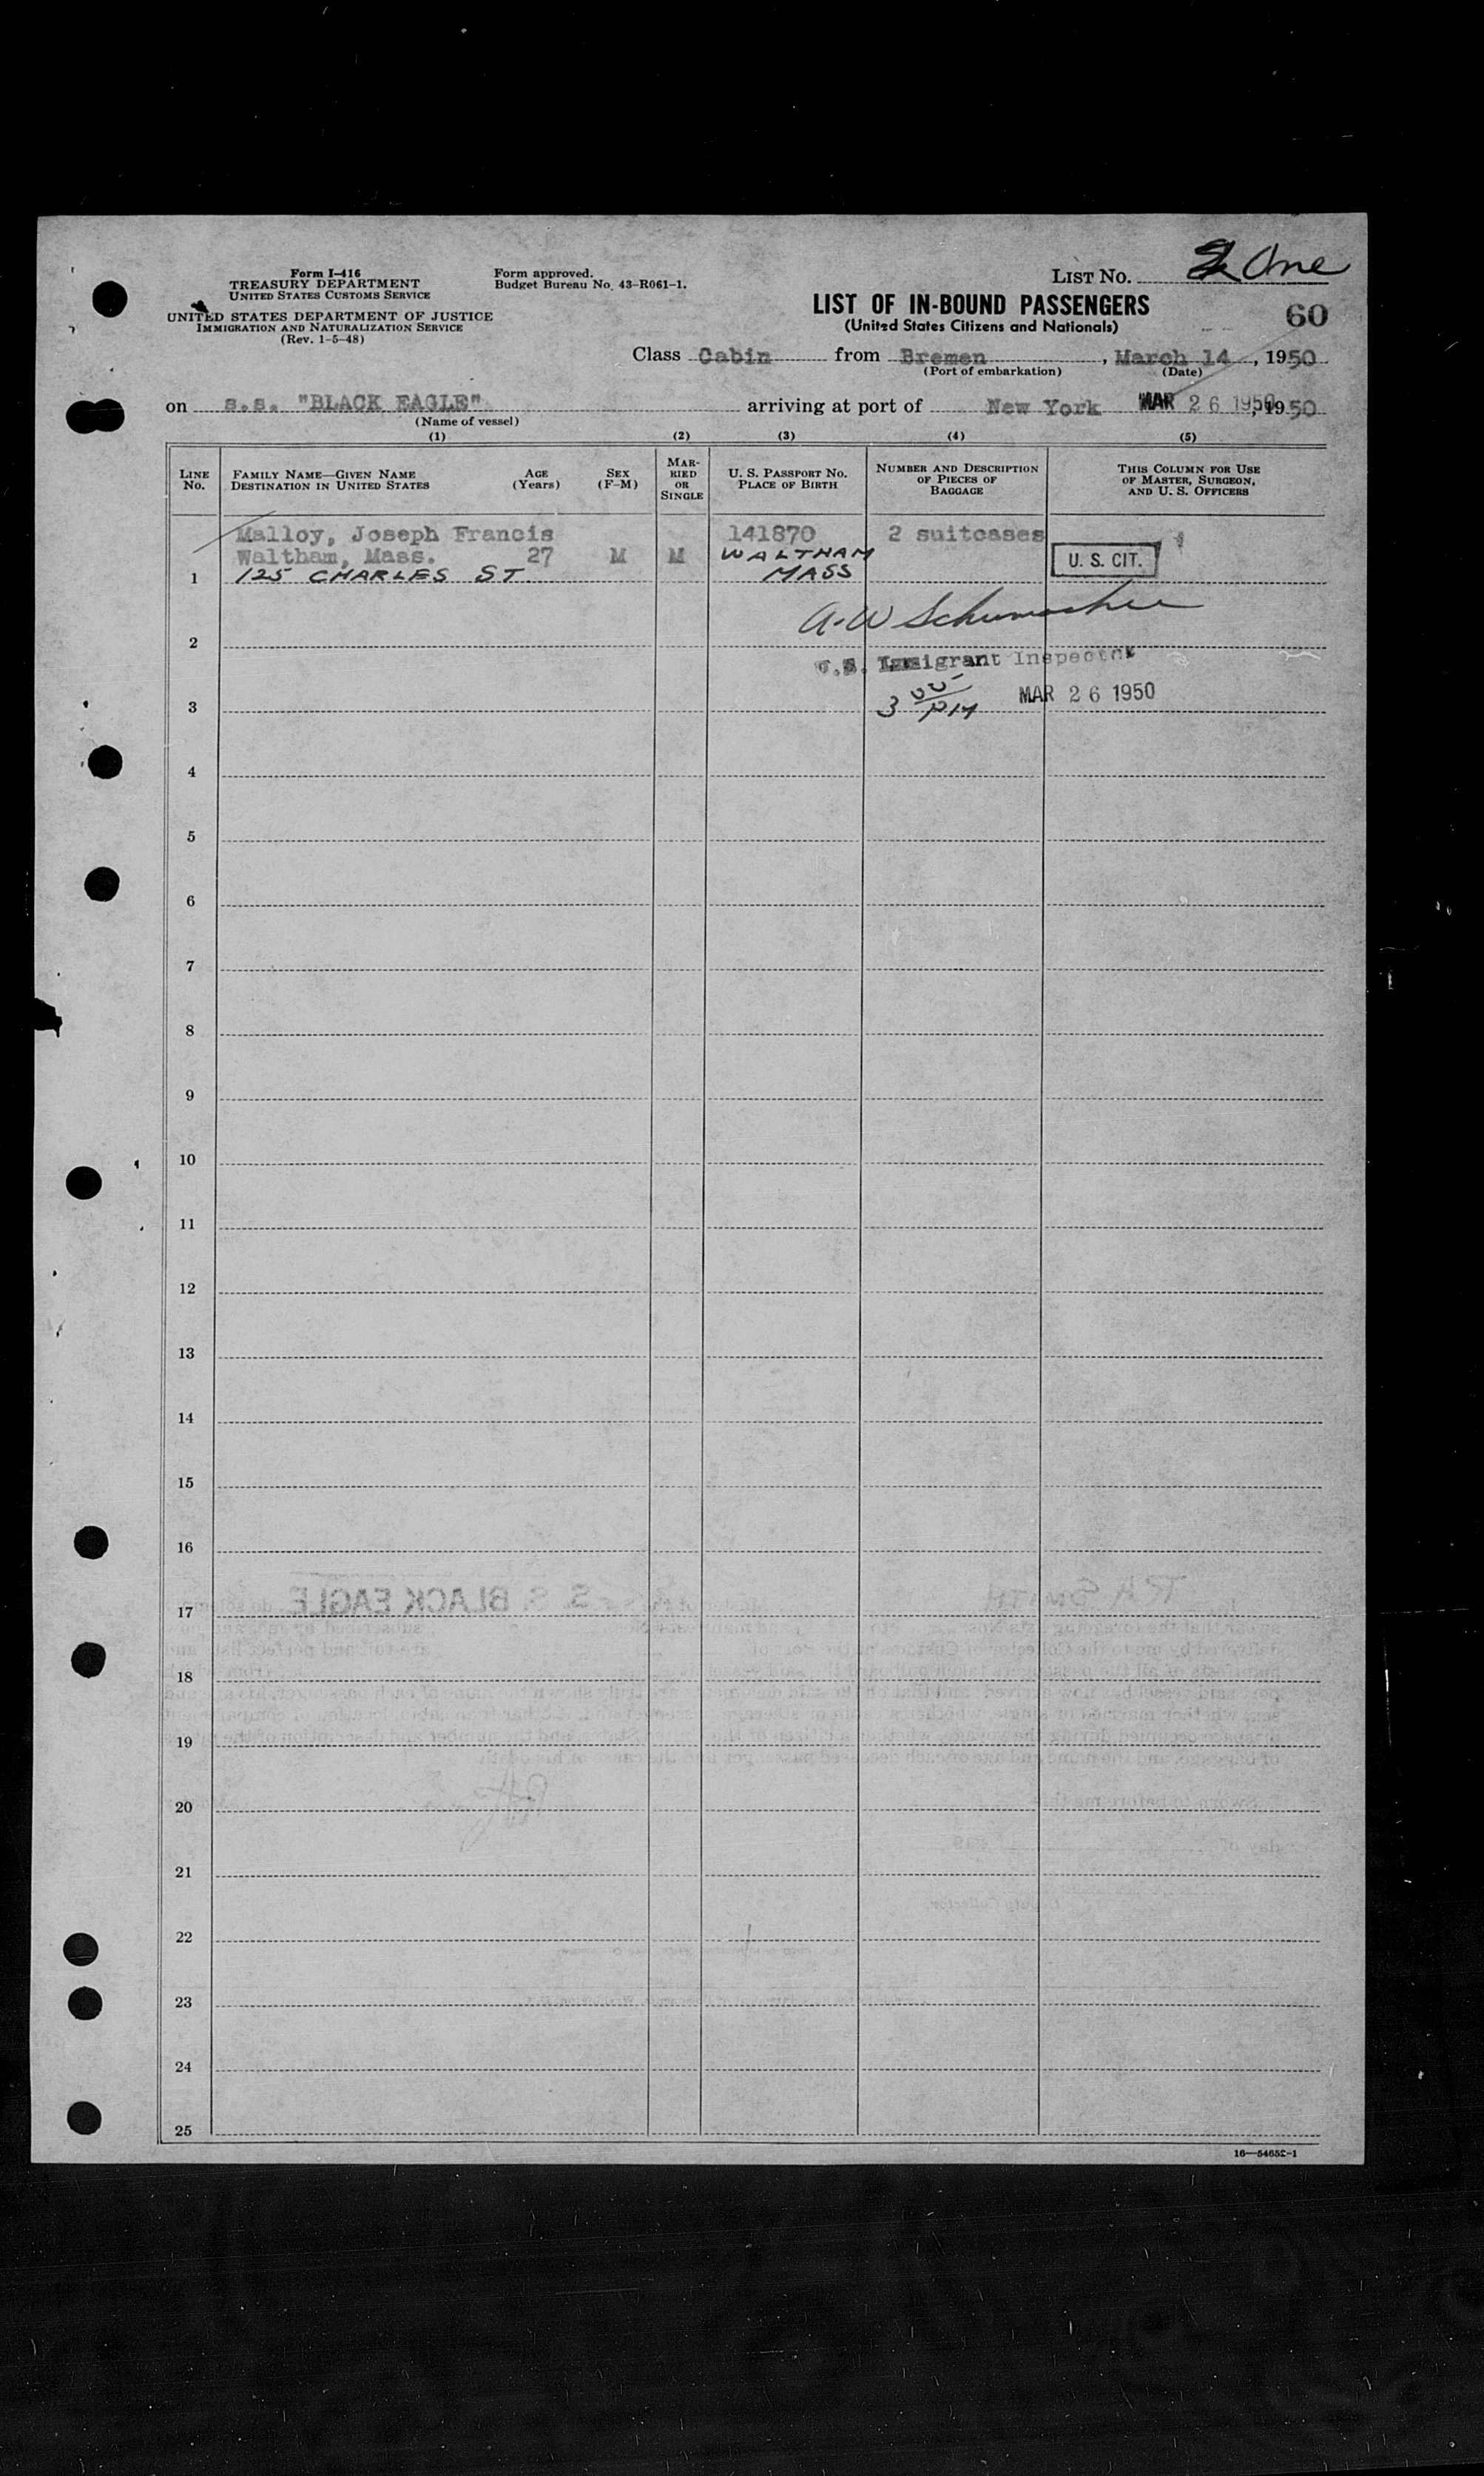 Form I-416
TREASURY DEPARTMENT
UNITED STATES CUSTOMS SERVICE
UNITED STATES DEPARTMENT OF JUSTICE
IMMIGRATION AND NATURALIZATION SERVICE
(Rev. 1-5-48)
Form approved.
Budget Bureau No. 43-R061-1.
LIST No. One
LIST OF IN-BOUND PASSENGERS
(United States Citizens and Nationals)
60
Class Cabin from Bremen, March 14, 1950
(Port of embarkation) (Date)
on s.s. "BLACK EAGLE" arriving at port of New York MAR 26 1950, 1950
(Name of vessel)
(1) (2) (3) (4) (5)
LINE No.
FAMILY NAME—GIVEN NAME
DESTINATION IN UNITED STATES
AGE (Years)
SEX (F-M)
MARRIED OR SINGLE
U. S. PASSPORT No.
PLACE OF BIRTH
NUMBER AND DESCRIPTION OF PIECES OF BAGGAGE
THIS COLUMN FOR USE OF MASTER, SURGEON, AND U. S. OFFICERS
Malloy, Joseph Francis 141870 2 suitcases
Waltham, Mass. 27 M M WALTHAM U. S. CIT.
1 125 CHARLES ST. MASS
A.W Schumacher
2
U.S. Immigrant Inspector
3 3 00 PM MAR 26 1950
4
5
6
7
8
9
10
11
12
13
14
15
16
17 S. S. BLACK EAGLE
18
19
20
21
22
23
24
25
16—54652-1